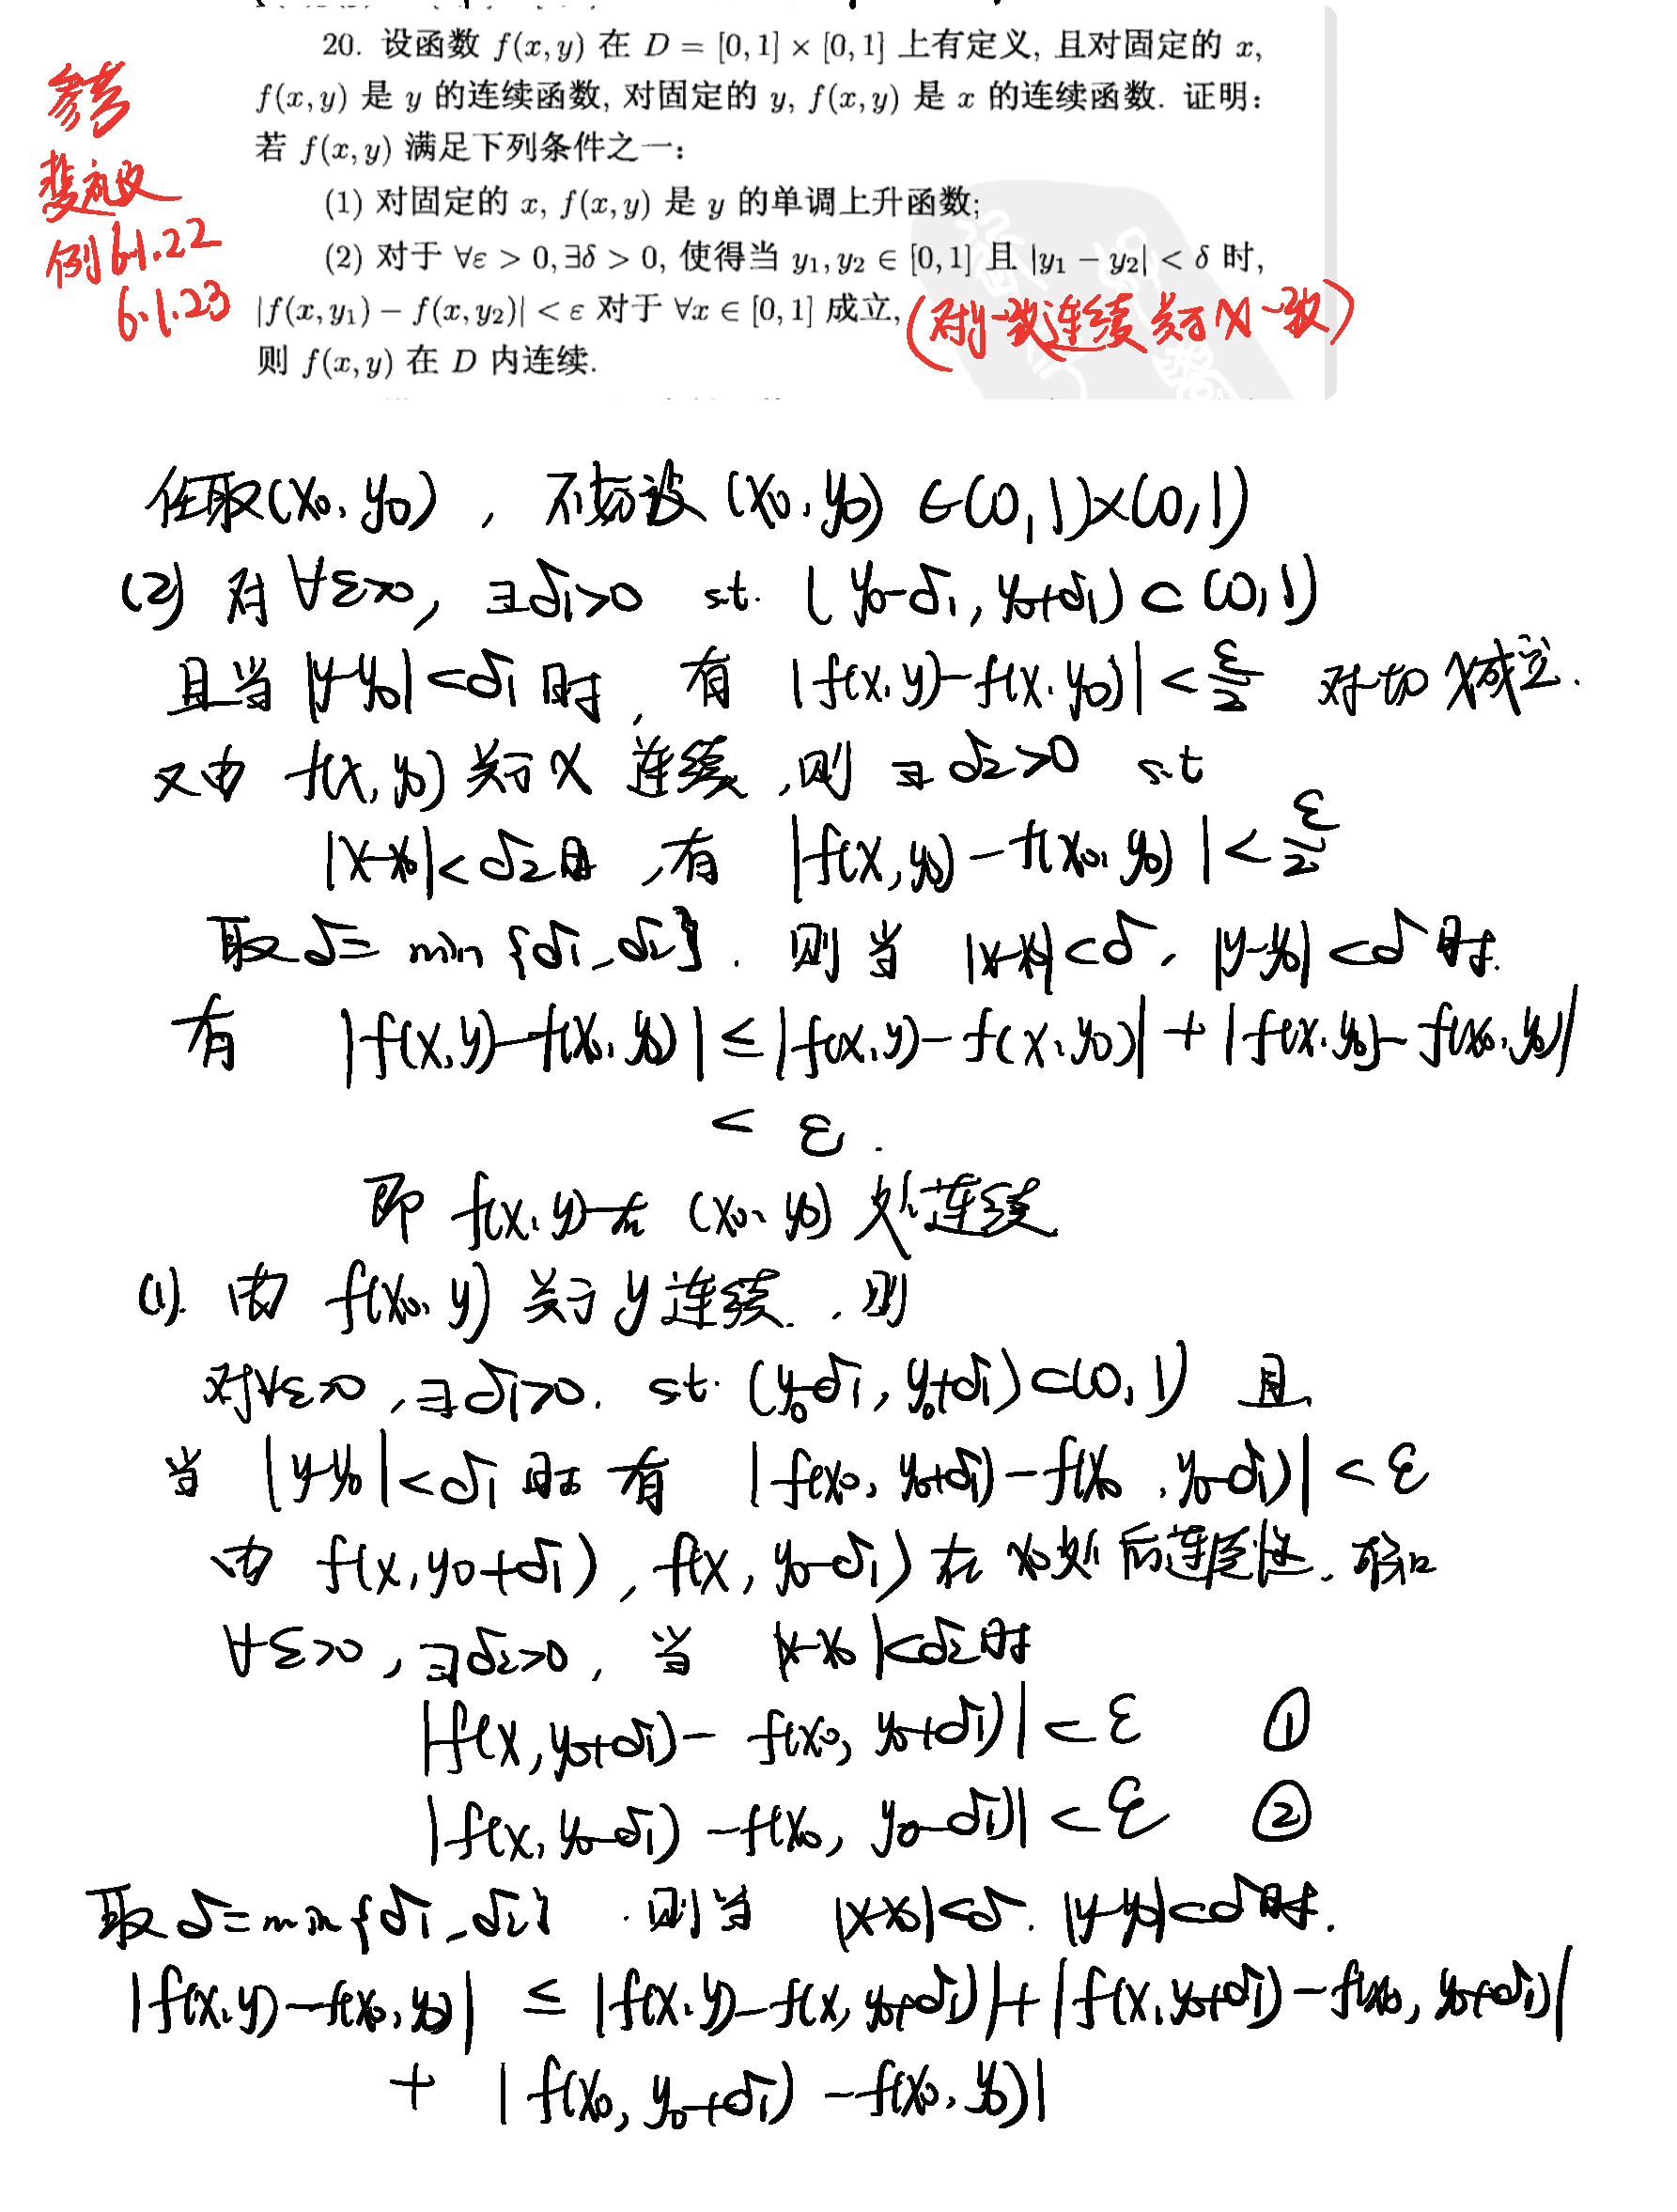 20. 设函数 f(x,y) 在 D = [0,1] × [0,1] 上有定义, 且对固定的 x,
f(x,y) 是 y 的连续函数, 对固定的 y, f(x,y) 是 x 的连续函数. 证明:
若 f(x,y) 满足下列条件之一:
(1) 对固定的 x, f(x,y) 是 y 的单调上升函数;
(2) 对于 ∀ε > 0, ∃δ > 0, 使得当 y₁, y₂ ∈ [0,1] 且 |y₁ − y₂| < δ 时,
|f(x,y₁) − f(x,y₂)| < ε 对于 ∀x ∈ [0,1] 成立,
(对y一致连续 关于X一致)
则 f(x,y) 在 D 内连续.
参考
裴礼文
例6.1.22
6.1.23
任取(x₀,y₀), 不妨设 (x₀,y₀) ∈(0,1)×(0,1)
(2) 对 ∀ε>0, ∃δ₁>0 s.t. (y₀-δ₁, y₀+δ₁) ⊂ (0,1)
且当 |y-y₀|<δ₁ 时, 有 |f(x,y)-f(x,y₀)| < ε/2 对一切 x成立.
又由 f(x,y₀) 关于 x 连续, 则 ∃ δ₂>0 s.t
|x-x₀|<δ₂时, 有 |f(x,y₀)-f(x₀,y₀)| < ε/2
取δ= min {δ₁,δ₂}. 则当 |x-x₀|<δ, |y-y₀|<δ时.
有 |f(x,y)-f(x₀,y₀)| ≤ |f(x,y)-f(x,y₀)| + |f(x,y₀)-f(x₀,y₀)|
< ε.
即 f(x,y)在 (x₀,y₀) 处连续
(1). 由 f(x₀,y) 关于 y 连续., 则
对∀ε>0, ∃δ₁>0. s.t. (y₀-δ₁, y₀+δ₁)⊂(0,1) 且
当 |y-y₀|<δ₁时 有 |f(x₀,y₀+δ₁)-f(x₀,y₀-δ₁)| < ε
由 f(x,y₀+δ₁), f(x,y₀-δ₁) 在 x₀处 的连续性. 可知
∀ε>0, ∃δ₂>0, 当 |x-x₀|<δ₂时
|f(x,y₀+δ₁)- f(x₀,y₀+δ₁)| < ε ①
|f(x,y₀-δ₁)-f(x₀,y₀-δ₁)| < ε ②
取δ=min{δ₁,δ₂}. 则当 |x-x₀|<δ. |y-y₀|<δ时.
|f(x,y)-f(x₀,y₀)| ≤ |f(x,y)-f(x,y₀+δ₁)|+|f(x,y₀+δ₁)-f(x₀,y₀+δ₁)|
+ |f(x₀,y₀+δ₁)-f(x₀,y₀)|